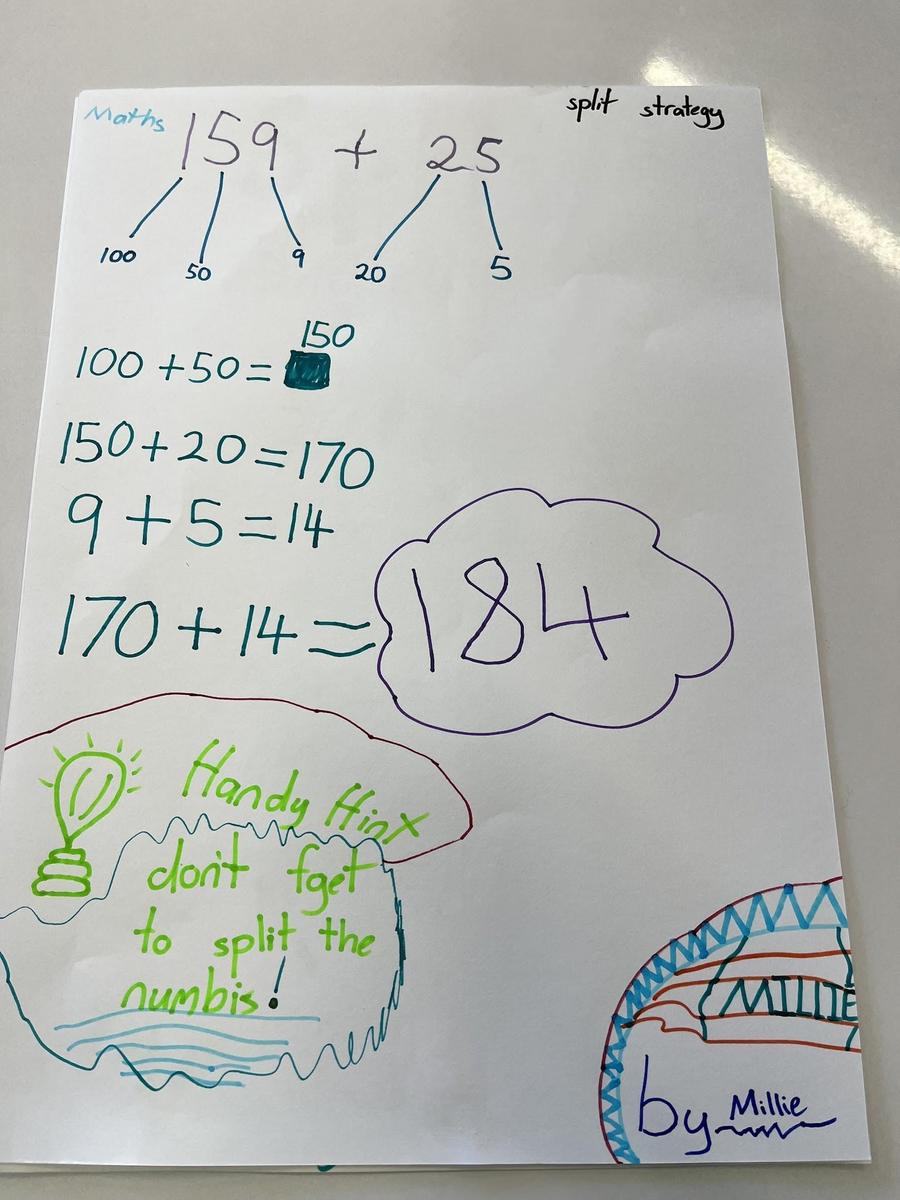 split strategy
Maths
159 + 25
100 50 9 20 5
150
100 + 50 =
150 + 20 = 170
9 + 5 = 14
170 + 14 = 184
Handy Hinx
don't fget
to split the
numbis!
MILLIE
by Millie